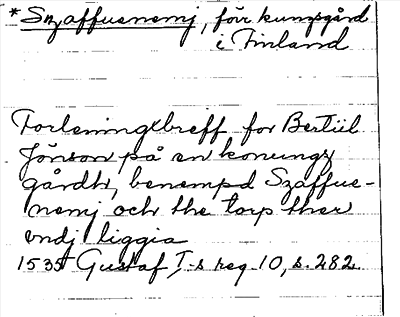 *Szaffuenemj, förr kungsgård
i Finland
Forleningxbreff for Bertiil
Jönson på en konungx
gårdh, benempd Szaffue-
nemj och the torp ther
vndj liggia
1535 Gustaf I-s reg. 10, s. 282